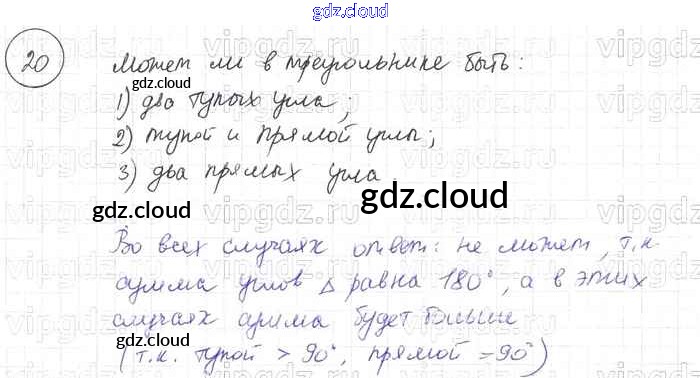 gdz.cloud
20 Может ли в треугольнике быть:
gdz.cloud
1) два тупых угла;
2) тупой и прямой углы;
3) два прямых угла
gdz.cloud
gdz.cloud
Во всех случаях ответ: не может, т.к.
сумма углов Δ равна 180°, а в этих
gdz.cloud
случаях сумма будет больше
gdz.cloud
(т.к. тупой > 90°, прямой = 90°)